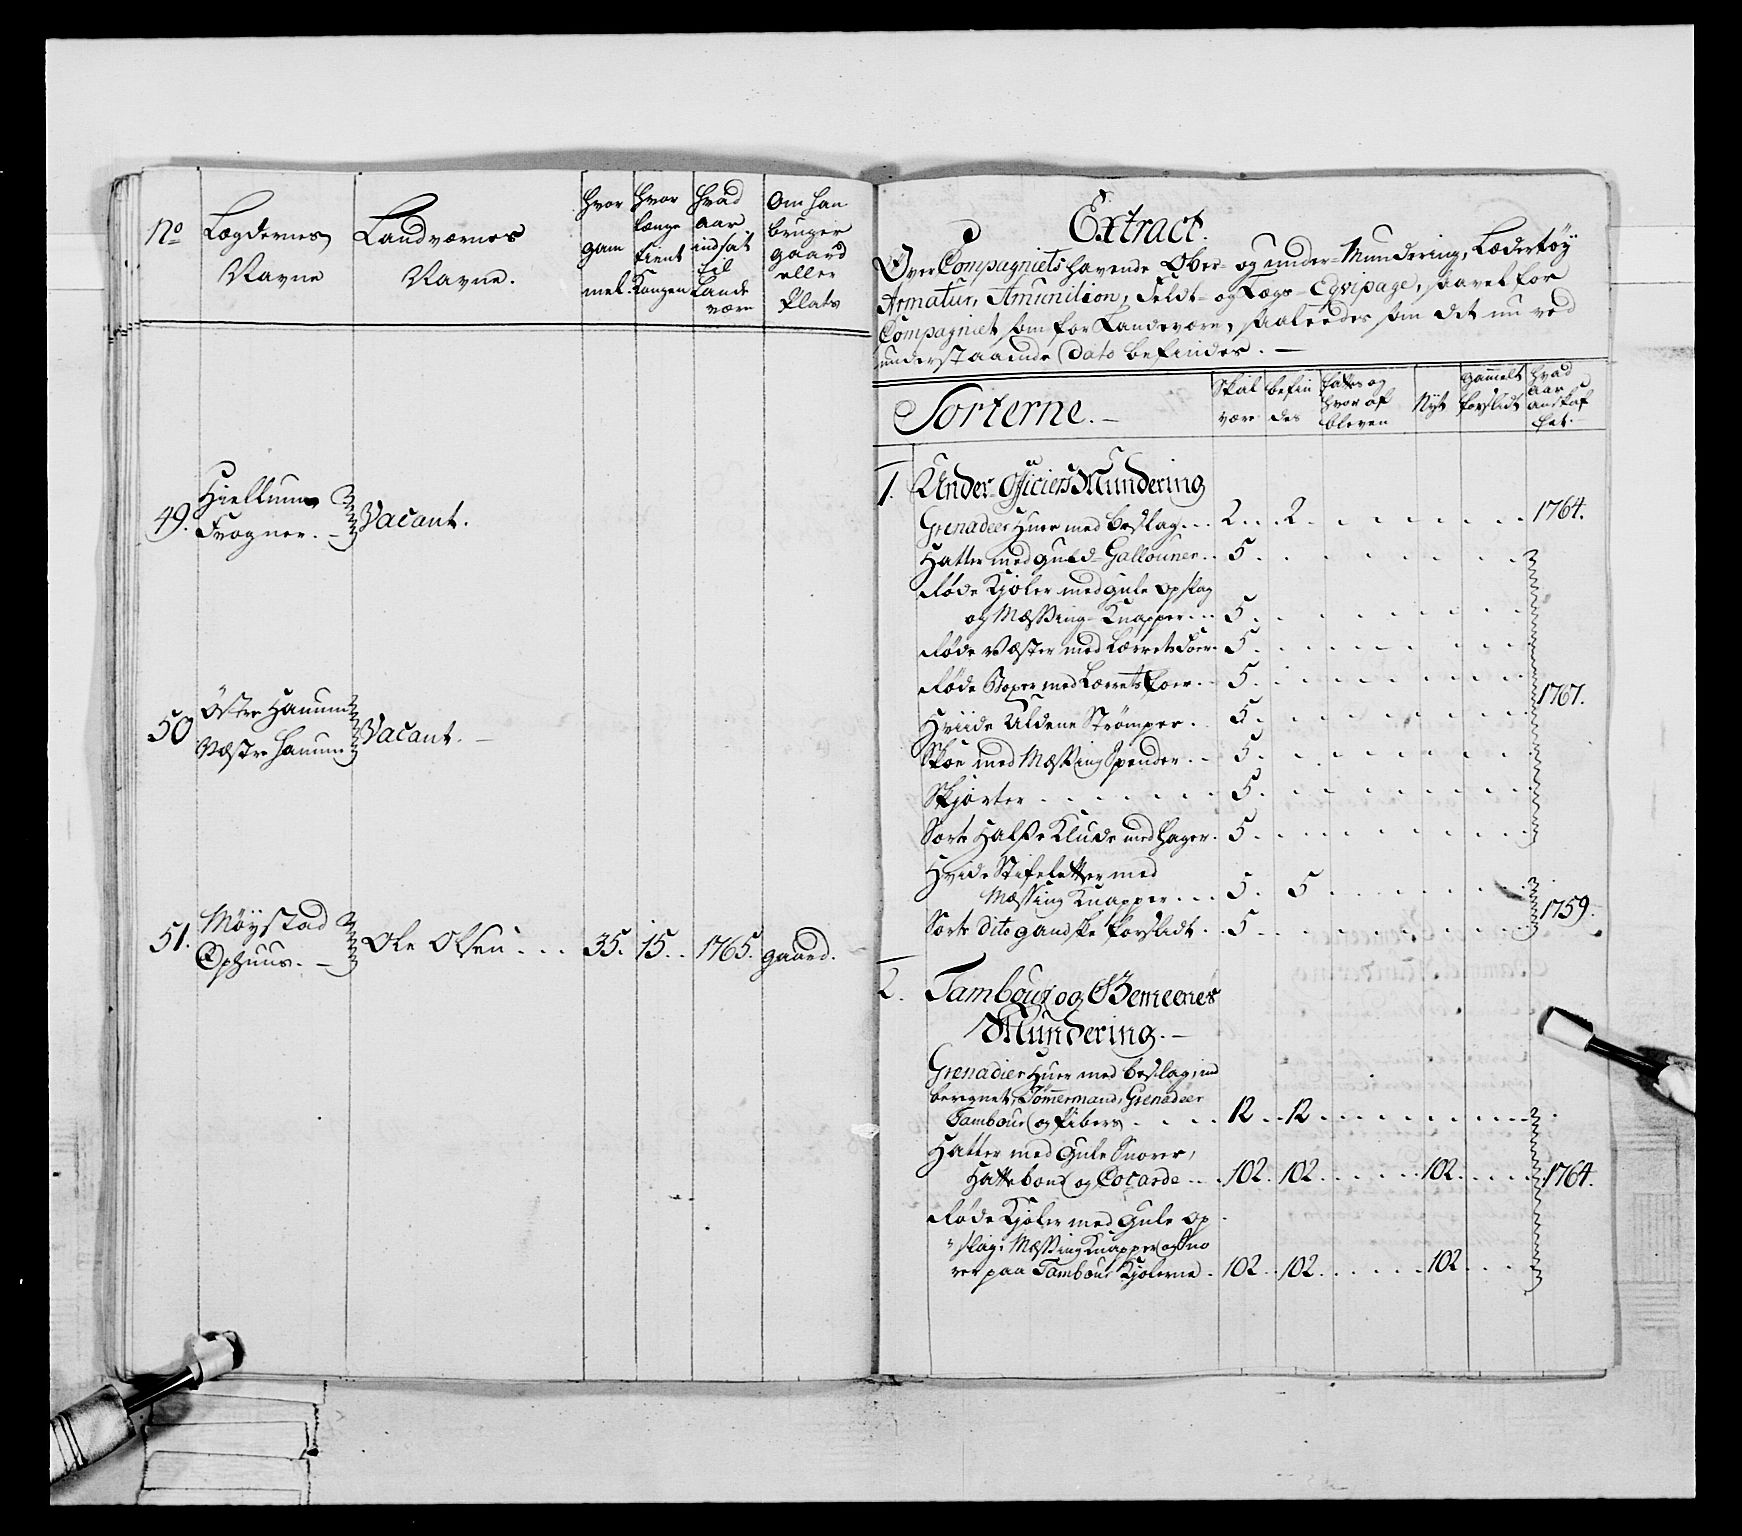 No
Lægdernes
Navne
Landværnes
Navne.
Hvor
gam
mel.
Hvor
længe
tient
Kongen
Hvad
aar
indsat
til
Lande
værn
Om han
bruger
gaard
eller
Plats
49.
Hiellum
Frogner.
Vacant.
50
Østre Hanum
Væstre Hanum
Vacant.
51.
Møystad
Ophuus.
Ole Olsen . . . 35. 15. . 1765. gaard.
Extract.
Over Compagniets havende Ober- og under-Mundering, Lædertøy
Armatur, Amunition, Feldt- og Lægs-Eqvipage, saavel for
Compagniet som for Landeværn, saaleedes som det nu ved
understaaende Dato befindes. —
Sorterne. —
Skal
være
befin
des
hvor af
bleven
Nyt
gammelt
forslidt
Hvad
aar
anskaf
fet.
1. Under-Officiers Mundering
Grenadeer Huer med beslag . . . 2 . . . 2 . . . 1764.
Hatter med guld Gallouner . . 5 .
Røde Kjoler med gule opslag
og Messing-Knapper . . . 5 .
Røde Væster med Lærrets Foer . 5 .
Røde Boxer med Lærrets foer . . 5 . 1767.
Hviide Uldene Strømper . . 5 .
Skoe med Messing Spender . . 5 .
Skjorter . . . . . . 5 .
Sorte Halse Klude med Hager . 5 .
Hvide Stifeletter med
Messing Knapper . . . 5 . 5 . . .
Sorte dito gandske forslidt . . 5 . 1759.
2. Tambour og Gemeenes
Mundering. —
Grenadier Huer med beslag, ind
beregnet Tømmermand, Grenadeer
Tambour og Pibers . . . . 12 . . 12 . . .
Hatter med Gule Snorer,
Hattebond og Cocarde . . . 102 . 102 . . . . . 102 . . . . 1764.
Røde Kjoler med Gule op
slag, Messing Knapper og Sno
rer paa Tambour Kjolerne . 102 . . 102 . . . . . 102 . . .